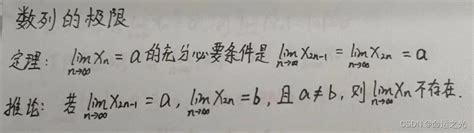 数列的极限
定理: lim_{n→∞} Xn = a 的充分必要条件是 lim_{n→∞} X2n-1 = lim_{n→∞} X2n = a
推论: 若 lim_{n→∞} X2n-1 = a, lim_{n→∞} X2n = b, 且 a≠b, 则 lim_{n→∞} Xn 不存在.